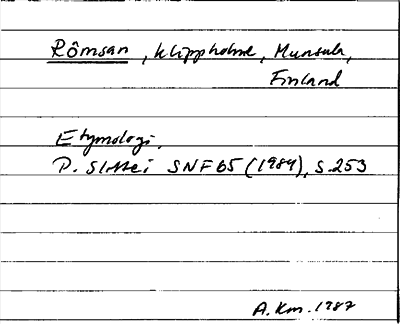 Römsan, klippholme, Munsala,
Finland
Etymologi.
P. Slotte i SNF 65 (1984), s. 253
A. Km. 1987